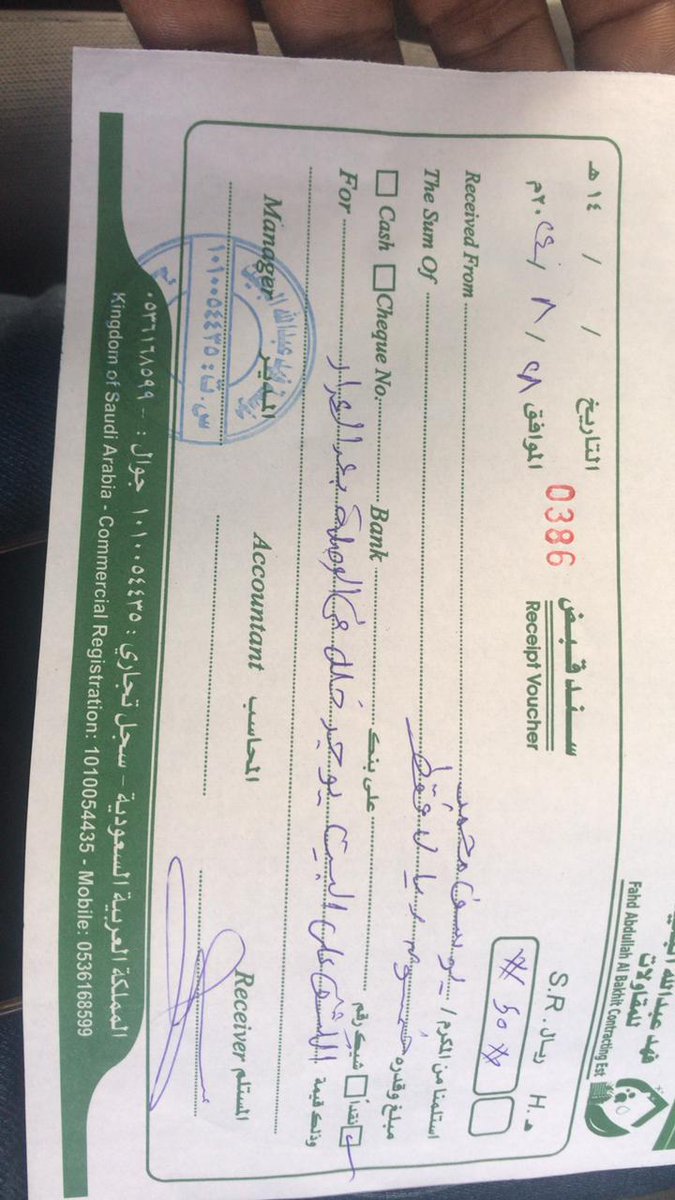 فهد عبدالله
للمقاولات
Fahd Abdullah Al Bakhit Contracting Est
ريال S.R. هـ H.
# 50 #
سند قبض
Receipt Voucher
0386
التاريخ / / ١٤هـ
الموافق ٢٨ / ٨ / ٢٠م
Received From استلمنا من المكرم / يوسف محمد
The Sum Of مبلغ وقدره خمسون ريال فقط
Cash Cheque No. Bank على بنك شيك رقم نقداً
For وذلك قيمة الكشف على البيت يوجد خلل في الوصلة بعد العداد
Manager المدير Accountant المحاسب Receiver المستلم
س.ت: ١٠١٠٠٥٤٤٣٥
المملكة العربية السعودية - سجل تجاري : ١٠١٠٠٥٤٤٣٥ جوال : ٠٥٣٦١٦٨٥٩٩
Kingdom of Saudi Arabia - Commercial Registration: 1010054435 - Mobile: 0536168599